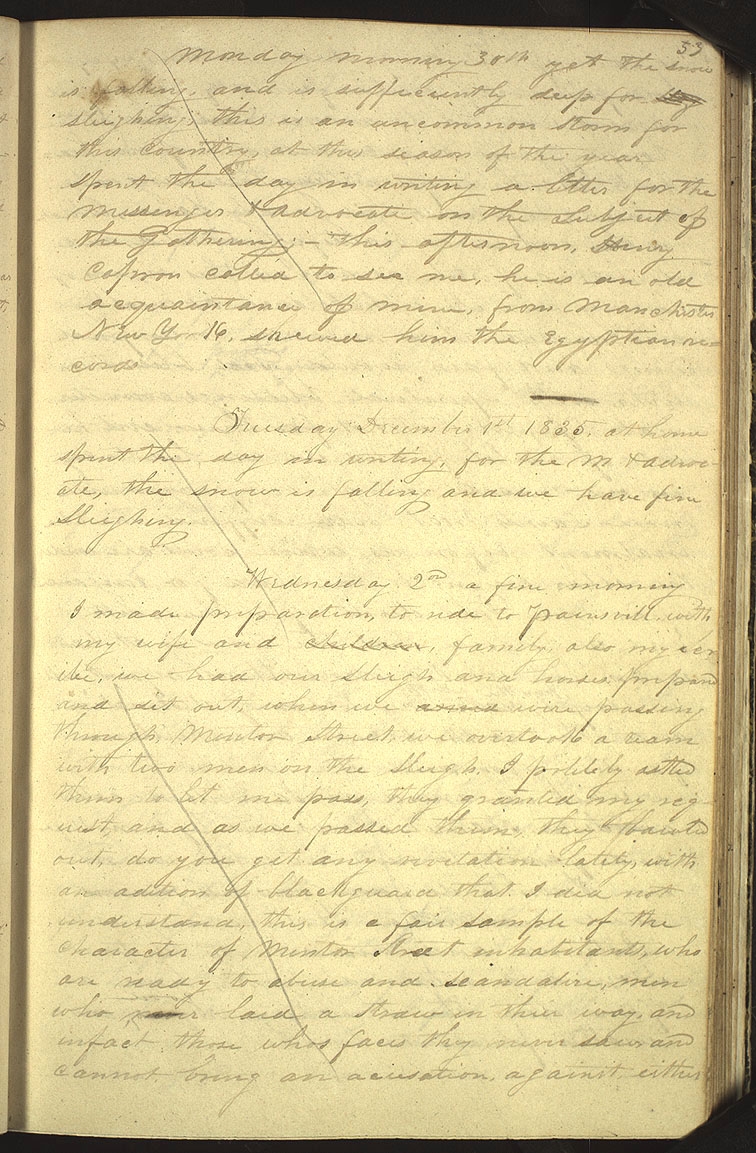 53
Monday morning 30th yet the snow
is falling, and is sufficiently deep for
sleighing, this is an uncommon storm for
this country, at this season of the year
spent the day in writing a letter for the
Messenger & Advocate on the subject of
the Gathering; — this afternoon, Henry
Capron called to see me, he is an old
acquaintance of mine, from Manchester
New York, shewed him the Egyptian re=
cords
Tuesday December 1st 1835. at home
spent the day in writing, for the M & Advoc-
ate, the snow is falling and we have fine
sleighing.
Wednesday 2nd a fine morning
I made preparation, to ride to Painsvill, with
my wife and children, family, also my scr
ibe, we had our sleigh and horses prepared
and set out, when we were passing
through Mentor Street, we overtook a team
with two men on the sleigh, I politely asked
them to let me pass, they granted my req-
uest, and as we passed them, they bawled
out, do you get any revelation lately, with
an adition of blackguard that I did not
understand, this is a fair sample of the
character of Mentor Street inhabitants, who
are ready to abuse and scandalize, men
who never laid a straw in their way, and
infact those whos faces they never saw and
cannot, bring an acusation, against, either